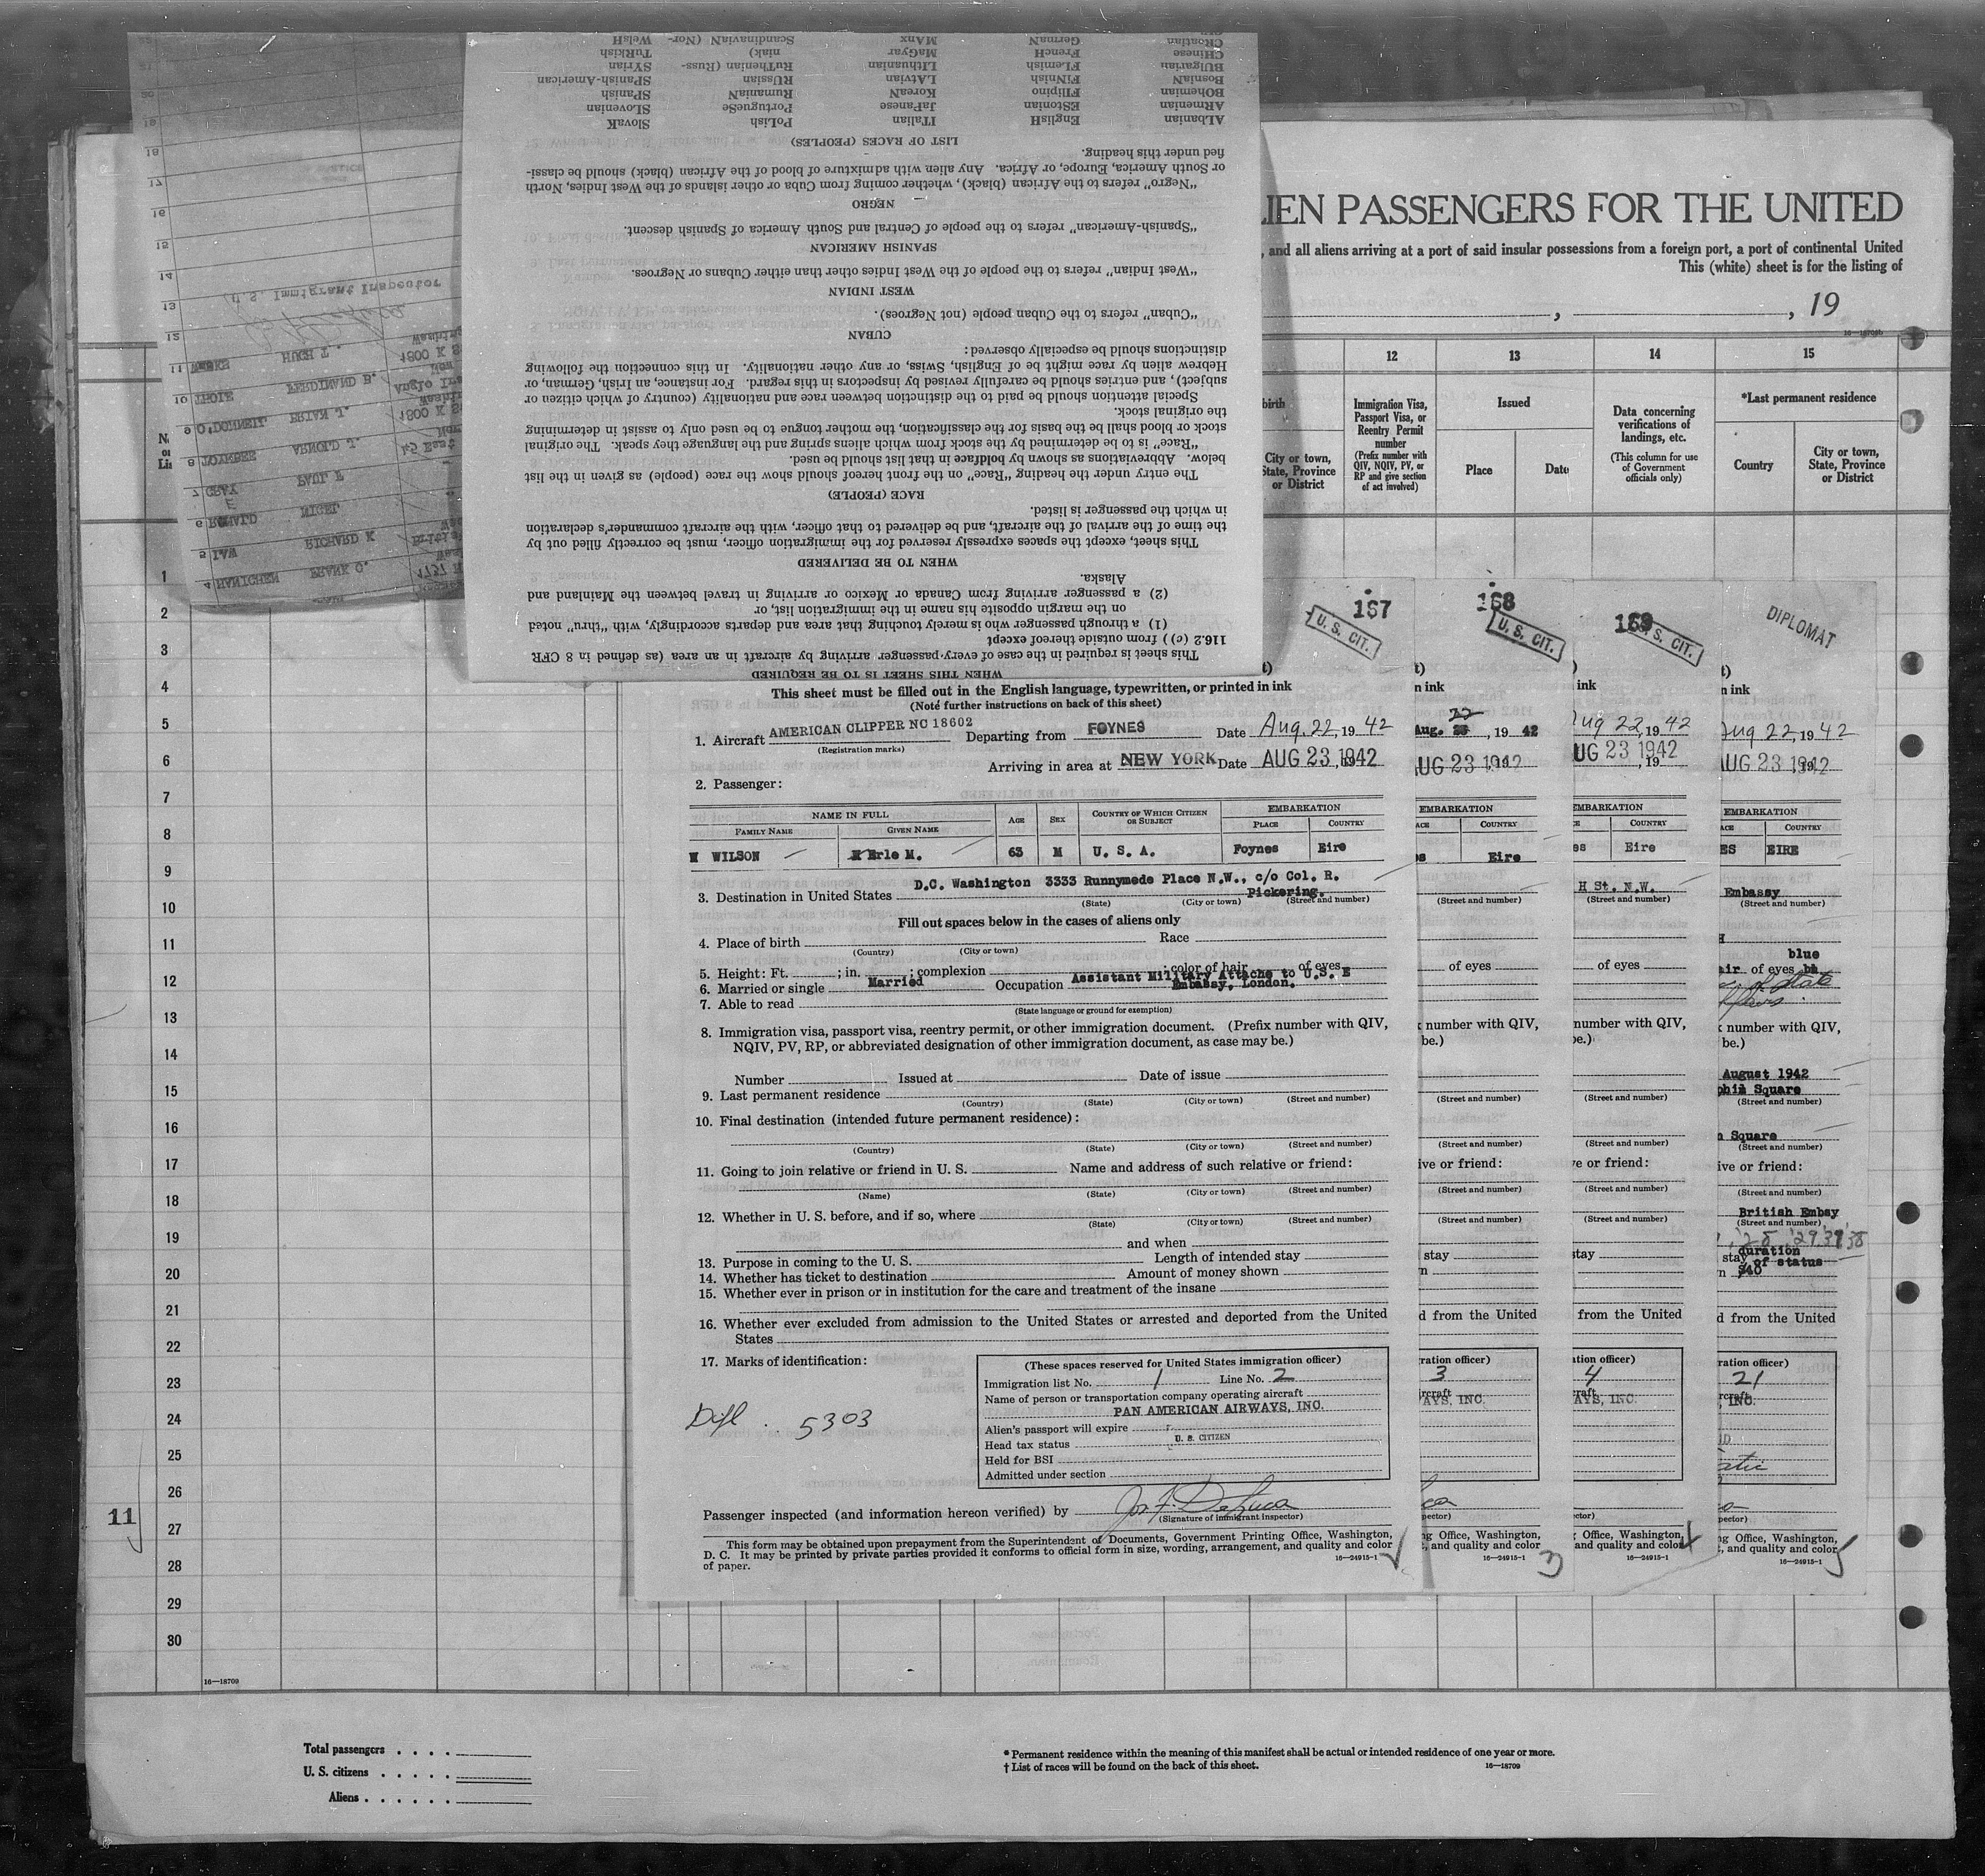 WHEN THIS SHEET IS TO BE REQUIRED
This sheet is required in the case of every passenger arriving by aircraft in an area (as defined in 8 CFR
116.2 (c)) from outside thereof except
(1) a through passenger who is merely touching that area and departs accordingly, with "thru" noted
on the margin opposite his name in the immigration list, or
(2) a passenger arriving from Canada or Mexico or arriving in travel between the Mainland and
Alaska.
WHEN TO BE DELIVERED
This sheet, except the spaces expressly reserved for the immigration officer, must be correctly filled out by
the time of the arrival of the aircraft, and be delivered to that officer, with the aircraft commander's declaration
in which the passenger is listed.
RACE (PEOPLE)
The entry under the heading "Race" on the front hereof should show the race (people) as given in the list
below. Abbreviations as shown by boldface in that list should be used.
"Race" is to be determined by the stock from which aliens spring and the language they speak. The original
stock or blood shall be the basis for the classification, the mother tongue to be used only to assist in determining
the original stock.
Special attention should be paid to the distinction between race and nationality (country of which citizen or
subject), and entries should be carefully revised by inspectors in this regard. For instance, an Irish, German, or
Hebrew alien by race might be of English, Swiss, or any other nationality. In this connection the following
distinctions should be especially observed:
CUBAN
"Cuban" refers to the Cuban people (not Negroes).
WEST INDIAN
"West Indian" refers to the people of the West Indies other than either Cubans or Negroes.
SPANISH AMERICAN
"Spanish-American" refers to the people of Central and South America of Spanish descent.
NEGRO
"Negro" refers to the African (black), whether coming from Cuba or other islands of the West Indies, North
or South America, Europe, or Africa. Any alien with admixture of blood of the African (black) should be classi-
fied under this heading.
LIST OF RACES (PEOPLES)
ALbanian EnglisH ITalian PoLish SlovaK
ARmenian EStonian JaPanese PortugueSe SLovenian
BOhemian FIlipino KoreaN RumaniaN SPanish
BosniaN FiNnish LAtvian RUssian SPanish-American
BUlgarian FLemish LIthuanian RuThenian (Russ- SYrian
CHinese FrencH MaGyar niak) TuRkish
CRoatian GermaN MAnx ScandinaviaN (Nor- WelsH
4 HANICHEN FRANK C. 1737 H
5 LAW RICHARD K
6 RONALD NIGEL
7 GRAY PAUL F
8 TOYNBEE ARNOLD J. 45 East
9 O'DONNELL BRIAN J. 1800 K S
10 THOLE FERDINAND B. Anglo
11 HUGH T. 1800 K S
12
(U.S. Immigrant Inspector
13
14
15
16
17
18
19
LIEN PASSENGERS FOR THE UNITED
, and all aliens arriving at a port of said insular possessions from a foreign port, a port of continental United
This (white) sheet is for the listing of
, , 19
12 13 14 15
birth
City or town, State, Province or District
Immigration Visa, Passport Visa, or Reentry Permit number
(Prefix number with QIV, NQIV, PV, or RP and give section of act involved)
Issued
Place Date
Data concerning verifications of landings, etc.
(This column for use of Government officials only)
*Last permanent residence
Country City or town, State, Province or District
1
2
3
4
5
6
7
8
9
10
11
12
13
14
15
16
17
18
19
20
21
22
23
24
25
26
27
28
29
30
11
16—18709
167
U. S. CIT.
This sheet must be filled out in the English language, typewritten, or printed in ink
(Note further instructions on back of this sheet)
1. Aircraft AMERICAN CLIPPER NC 18602 Departing from FOYNES Date Aug. 22, 1942
(Registration marks)
Arriving in area at NEW YORK Date AUG 23 1942
2. Passenger:
NAME IN FULL AGE SEX COUNTRY OF WHICH CITIZEN OR SUBJECT EMBARKATION
FAMILY NAME GIVEN NAME PLACE COUNTRY
W WILSON Erle M. 63 M U. S. A. Foynes Eire
D.C. Washington 3333 Runnymede Place N.W., c/o Col. R.
Pickering.
3. Destination in United States
(State) (City or town) (Street and number)
Fill out spaces below in the cases of aliens only
4. Place of birth Race
(Country) (City or town)
5. Height: Ft. ; in. ; complexion ; color of hair of eyes
6. Married or single Married Occupation Assistant Military Attache to U.S. E
Embassy, London.
7. Able to read
(State language or ground for exemption)
8. Immigration visa, passport visa, reentry permit, or other immigration document. (Prefix number with QIV,
NQIV, PV, RP, or abbreviated designation of other immigration document, as case may be.)
Number Issued at Date of issue
9. Last permanent residence
(Country) (State) (City or town) (Street and number)
10. Final destination (intended future permanent residence):
(Country) (State) (City or town) (Street and number)
11. Going to join relative or friend in U. S. Name and address of such relative or friend:
(Name) (State) (City or town) (Street and number)
12. Whether in U. S. before, and if so, where
(State) (City or town) (Street and number)
and when
13. Purpose in coming to the U. S. Length of intended stay
14. Whether has ticket to destination Amount of money shown
15. Whether ever in prison or in institution for the care and treatment of the insane
16. Whether ever excluded from admission to the United States or arrested and deported from the United
States
17. Marks of identification:
(These spaces reserved for United States immigration officer)
Immigration list No. 1 Line No. 2
Name of person or transportation company operating aircraft
PAN AMERICAN AIRWAYS, INC.
Alien's passport will expire
Head tax status U. S. CITIZEN
Held for BSI
Admitted under section
Dipl. 5303
Passenger inspected (and information hereon verified) by Jos F. DeLuca
(Signature of immigrant inspector)
This form may be obtained upon prepayment from the Superintendent of Documents, Government Printing Office, Washington,
D. C. It may be printed by private parties provided it conforms to official form in size, wording, arrangement, and quality and color
of paper.
16—24915-1
168
U. S. CIT.
n ink
Aug. 22, 19 42
UG 23 1942
EMBARKATION
COUNTRY
Eire
(Street and number)
of eyes
number with QIV,
be.)
(Street and number)
(Street and number)
ive or friend:
(Street and number)
(Street and number)
stay
d from the United
ration officer)
3
AYS, INC.
ng Office, Washington,
, and quality and color
16—24915-1
3
169
U. S. CIT.
ink
ug 22, 1942
UG 23 1942
EMBARKATION
COUNTRY
es Eire
H St. N.W.
(Street and number)
of eyes
number with QIV,
be.)
(Street and number)
(Street and number)
ve or friend:
(Street and number)
(Street and number)
stay
from the United
tion officer)
4
AYS, INC.
Office, Washington,
and quality and color
16—24915-1
DIPLOMAT
n ink
Aug 22, 1942
AUG 23 1942
EMBARKATION
COUNTRY
ES EIRE
Embassy
(Street and number)
blue
air of eyes
of State
number with QIV,
be.)
August 1942
phin Square
(Street and number)
n Square
(Street and number)
ive or friend:
(Street and number)
British Embsy
(Street and number)
stay duration
of status
$40
d from the United
ration officer)
21
, INC.
atic
ng Office, Washington,
, and quality and color
16—24915-1
5
Total passengers
U. S. citizens
Aliens
* Permanent residence within the meaning of this manifest shall be actual or intended residence of one year or more.
† List of races will be found on the back of this sheet.
16—18709